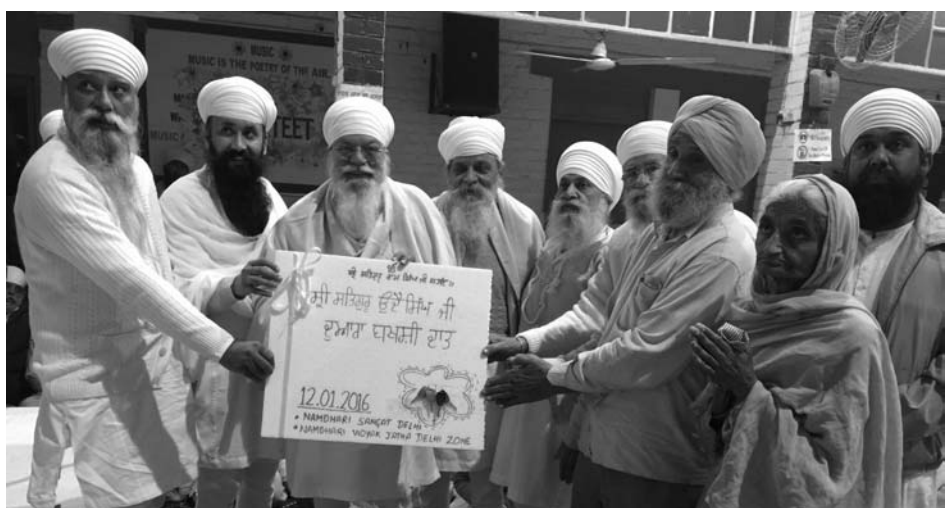 MUSIC
MUSIC IS THE POETRY OF THE AIR
MUSIC
TEET
ਸ੍ਰੀ ਸਤਿਗੁਰੂ ਰਾਮ ਸਿੰਘ ਜੀ ਸਹਾਇ॥
ਸ੍ਰੀ ਸਤਿਗੁਰੂ ਉਦੈ ਸਿੰਘ ਜੀ
ਦੁਆਰਾ ਬਖਸ਼ੀ ਦਾਤ
12.01.2016
• NAMDHARI SANGAT DELHI
• NAMDHARI VIDYAK JATHA DELHI ZONE